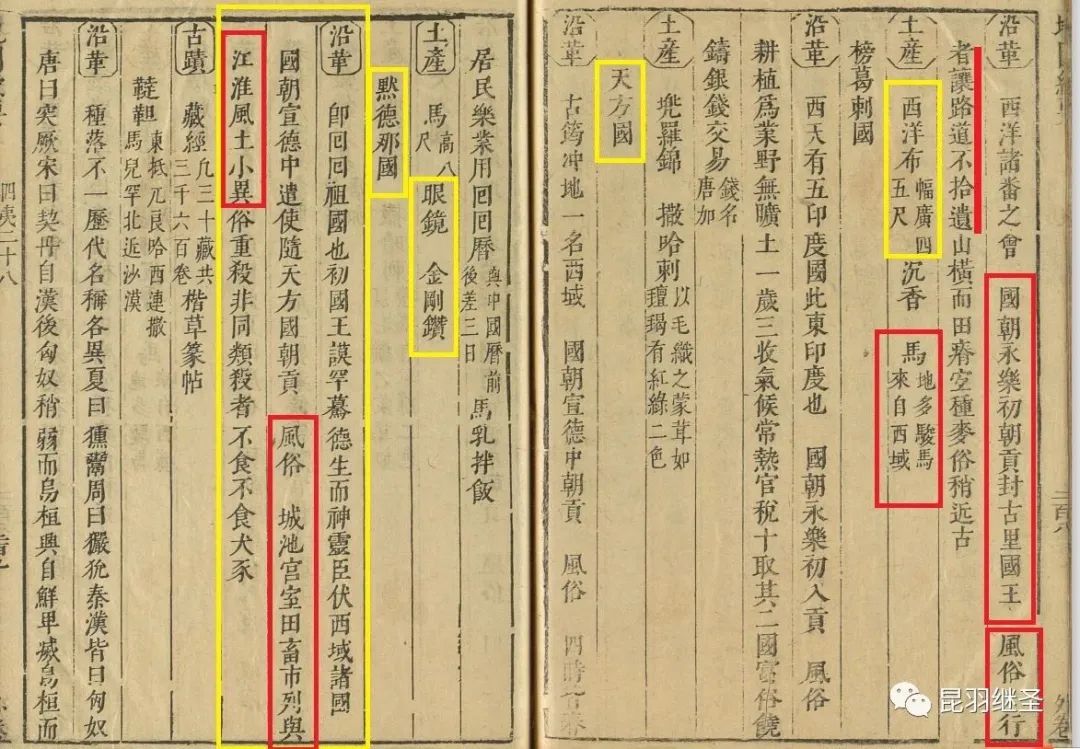 沿革 西洋諸番之會 國朝永樂初朝貢封古里國王 風俗 行
者讓路道不拾遺山橫而田瘠空種麥俗稍近古
土産 西洋布幅廣四五尺 沉香 馬地多駿馬來自西域
榜葛剌國
沿革 西天有五印度國此東印度也 國朝永樂初入貢 風俗
耕植爲業野無曠土一歲三收氣候常熱官稅十取其二國富俗饒
鑄銀錢交易錢名唐加
土産 兠羅錦 撒哈剌以毛織之蒙茸如氊毼有紅綠二色
天方國
沿革 古筠冲地一名西域 國朝宣德中朝貢 風俗 四時
居民樂業用回回曆與中國曆前後差三日 馬乳拌飯
土産 馬高八尺 眼鏡 金剛鑽
黙德那國
沿革 卽回回祖國也初國王謨罕驀德生而神靈臣伏西域諸國
國朝宣德中遣使隨天方國朝貢 風俗 城池宫室田畜市列與
江淮風土小異俗重殺非同類殺者不食不食犬豕
古蹟 藏經凡三十藏共三千六百卷 楷草篆帖
韃靼東抵兀良哈西連撒馬兒罕北近沙漠
沿革 種落不一歷代名稱各異夏曰獯鬻周曰玁狁秦漢皆曰匈奴
唐曰突厥宋曰契丹自漢後匈奴稍弱而烏桓興自鮮卑威烏桓而
昆羽继圣